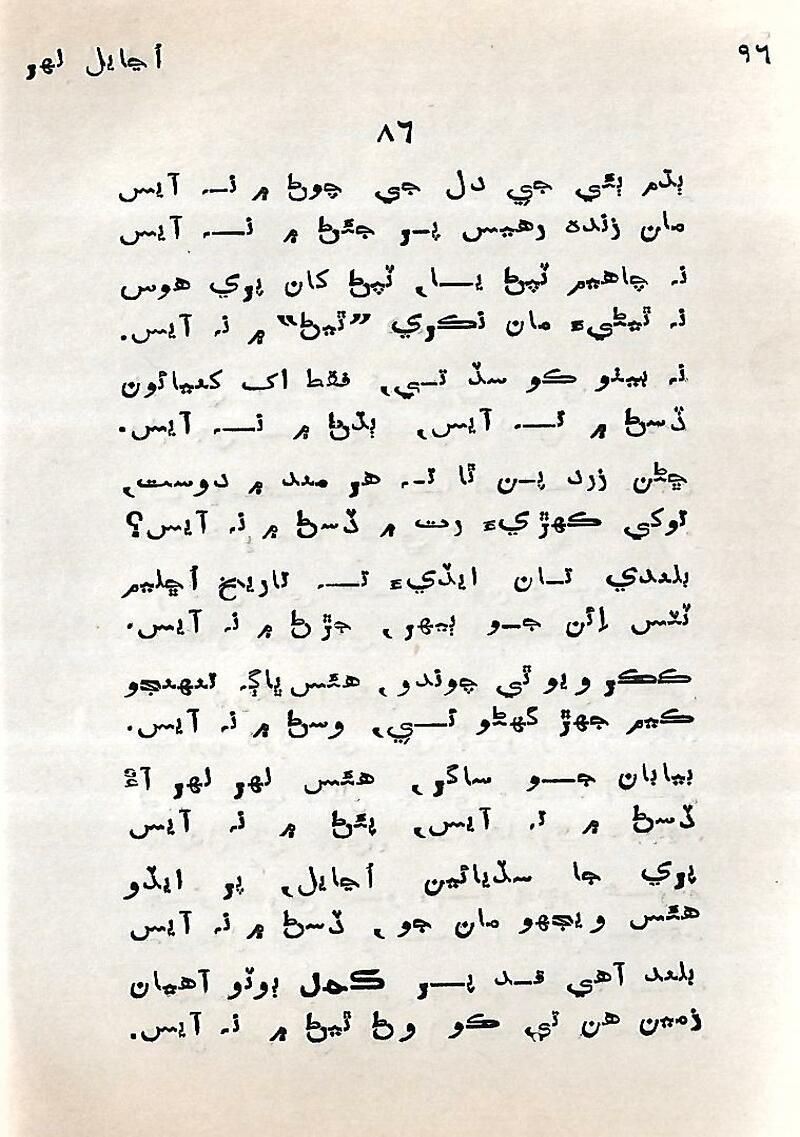 ۹٦
اُڃايل لهر
۸٦
ٻڌم ٻئي جي دل جي چوڻ ۾ نہ آيس
مان زندہ رهيس پر جئڻ ۾ نہ آيس
نہ چاهيم ٿيڻ يا، ٿيڻ کان پري هوس
نہ ٿيڻيءَ مان نڪري ”ٿيڻ“ ۾ نہ آيس.
نہ بيٺو ڪو سڏ تي، فقط اک کنيائون
ڏسڻ ۾ نہ آيس، ٻڌڻ ۾ نہ آيس.
ڇڻن زرد پن ٿا نہ هر مند ۾ دوست،
توکي ڪهڙيءَ رت ۾ ڏسڻ ۾ نہ آيس؟
بلندي تان ايڏيءَ تہ تاريخ اُڇليم
ٽٽس ائن جو ٻيهر، جڙڻ ۾ نہ آيس.
ڪڪر ويو ٿي چوندو، هئس ڀاڳ تنهنجو
ڪيم جهڙ گهڻو ئي، وسڻ ۾ نہ آيس.
بيابان جو ساگر، هئس لهر لهر آءٌ
ڏسڻ ۾ نہ آيس، پئڻ ۾ نہ آيس
پري جا سڏيائين اُڃايل، پر ايڏو
هئس ويجهو مان جو، ڏسڻ ۾ نہ آيس
بلند آهي قد پر ڪٿل ٻوٽو آهيان
زمين هن تي ڪو وڻ ٿيڻ ۾ نہ آيس.